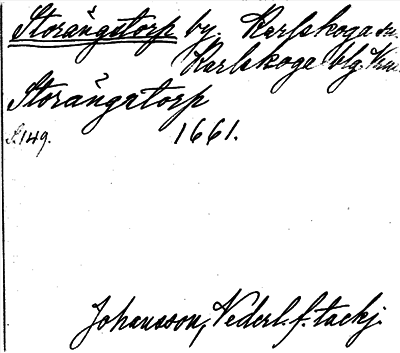 Storångstorp by, Karlskoga sn.
Karlskoga blg. Vrm.
Storångatorp
S. 149. 1661.
Johansson, Vederl. f. tackj.